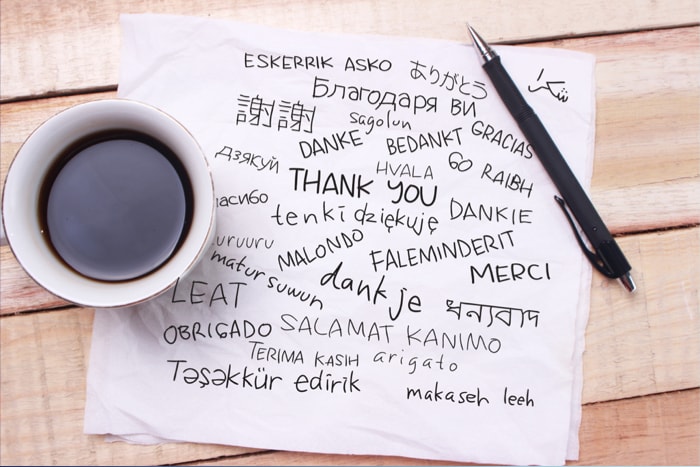 ESKERRIK ASKO
ありがとう
شكرا
Благодаря ВИ
謝謝
sagolun
DANKE
BEDANKT
GRACIAS
Дзякуй
HVALA
GO RAIBH
THANK YOU
асибо
tenki
dziękuję
DANKIE
uruuru
MALONDO
FALEMINDERIT
MERCI
matur suwun
dank je
ধন্যবাদ
LEAT
OBRIGADO
SALAMAT KANIMO
TERIMA KASIH
arigato
Təşəkkür edirik
makaseh leeh